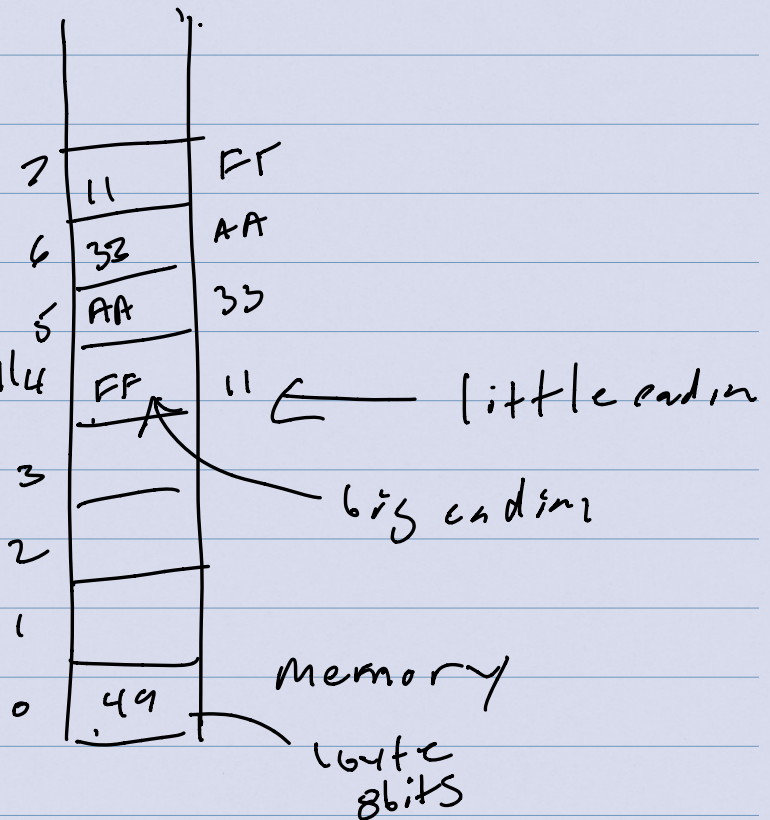 7 11 FF
6 33 AA
5 AA 33
4 FF 11 little eadin
3
big endinn
2
1
Memory
0 49
1byte
8bits